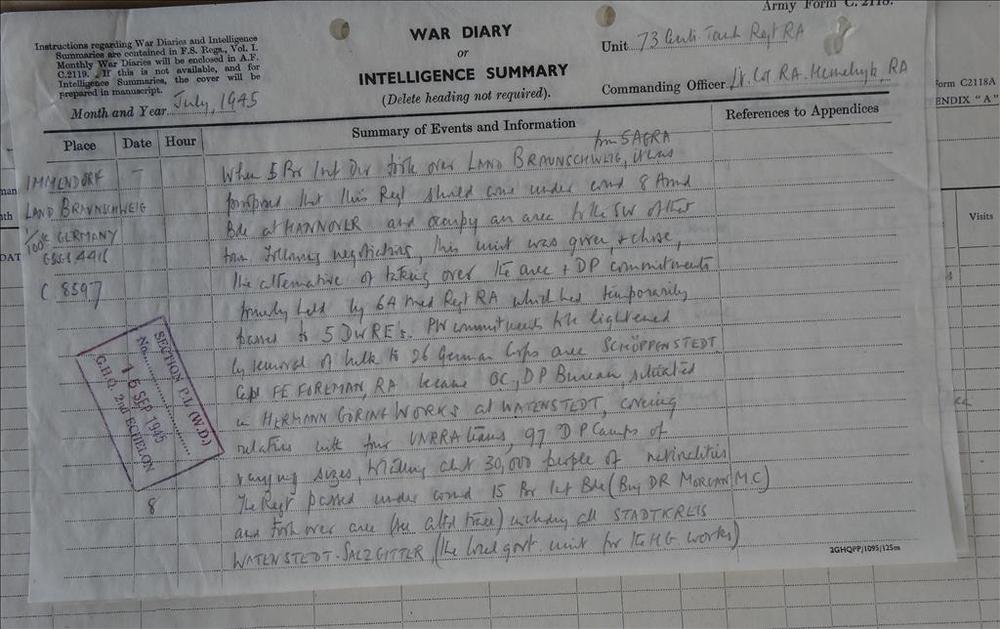 Army Form C. 2118.
Instructions regarding War Diaries and Intelligence
Summaries are contained in F.S. Regs., Vol. I.
Monthly War Diaries will be enclosed in A.F.
C.2119. If this is not available, and for
Intelligence Summaries, the cover will be
prepared in manuscript.
Month and Year July, 1945
WAR DIARY
or
INTELLIGENCE SUMMARY
(Delete heading not required).
Unit 73 Anti-Tank Regt RA
Commanding Officer Lt. Col RA. RA
Place Date Hour Summary of Events and Information References to Appendices
from SAGRA
IMMENDORF 7 When 5 Br Inf Div took over LAND BRAUNSCHWEIG, it was
LAND BRAUNSCHWEIG proposed that this Regt should come under comd 8 Armd
1/100K GERMANY Bde at HANNOVER and occupy an area to the SW of that
GSGS 4416 town. Following negotiations, this unit was given & chose,
C 8597 the alternative of taking over the area & DP commitments
formerly held by 64 Med Regt RA which had temporarily
passed to 5 DWRE's. PW commitments to be lightened
by removal of bulk to 26 German Corps area SCHÖPPENSTEDT
Capt FE FOREMAN, RA became OC, DP Bureau, situated
in HERMANN GORING WORKS at WATENSTEDT, covering
relations with four UNRRA teams, 97 DP Camps of
varying sizes, holding abt 30,000 people of nationalities
8 The Regt passed under comd 15 Br Inf Bde (Brig DR MORGAN M.C)
and took over area (see attd trace) including all STADTKREIS
WATENSTEDT-SALZGITTER (the local govt. unit for the HG works)
SECTION P.L. (W.D.)
No.
15 SEP 1945
G.H.Q. 2nd ECHELON
2GHQPP/1095/125m
Form C2118A
ENDIX "A"
Visits
DAT